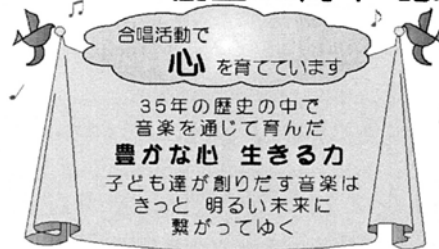 合唱活動で
心を育てています
35年の歴史の中で
音楽を通じて育んだ
豊かな心 生きる力
子ども達が創りだす音楽は
きっと 明るい未来に
繋がってゆく